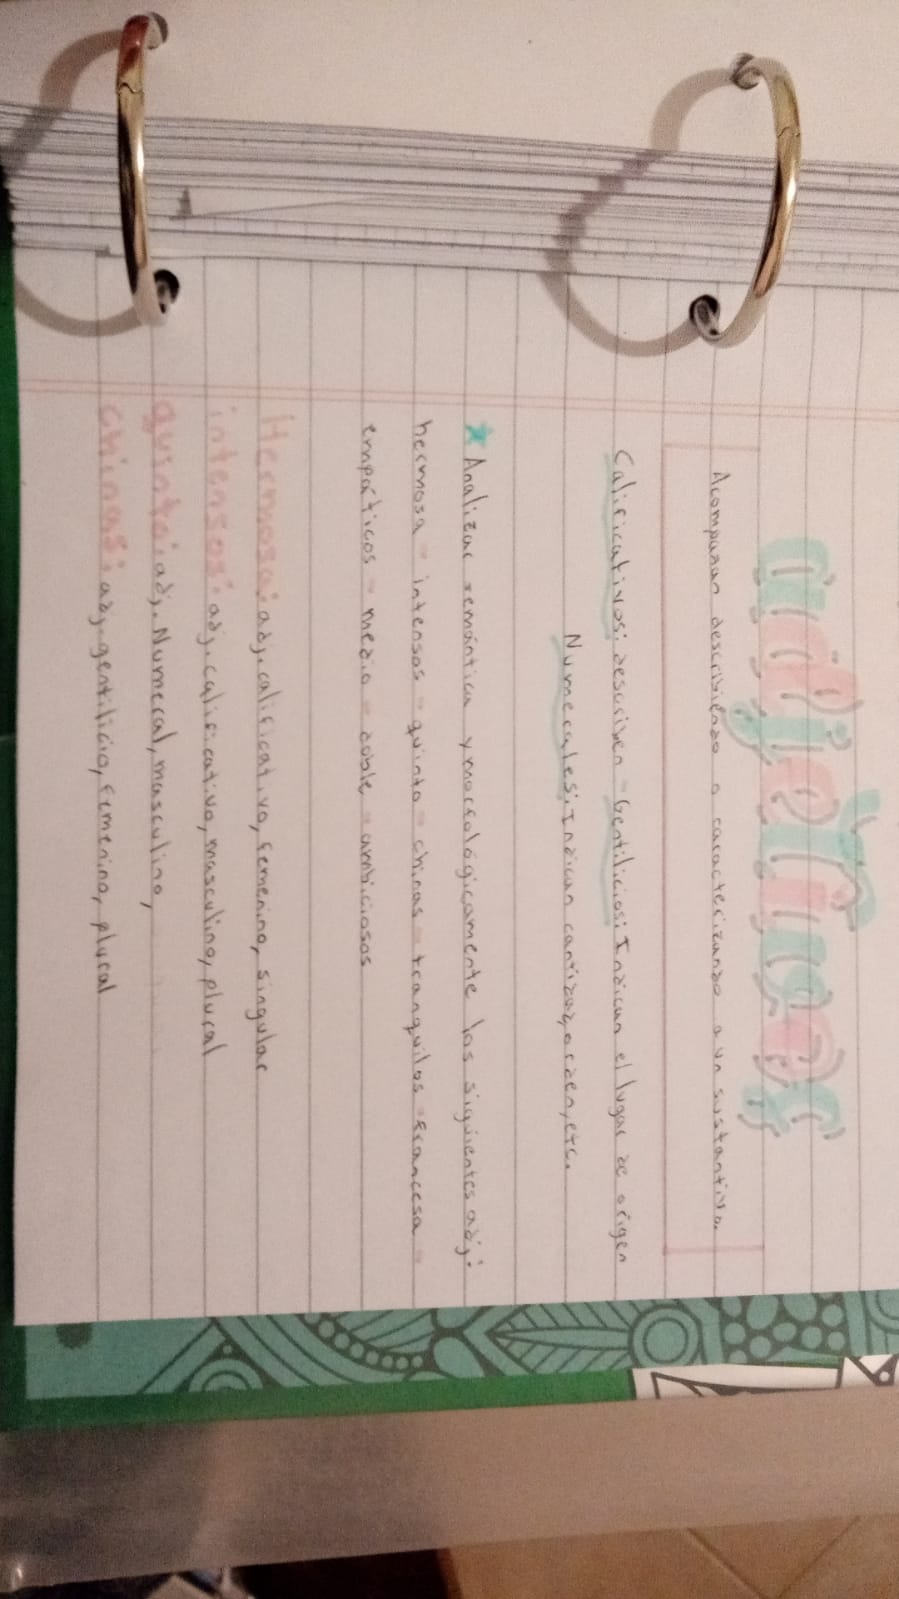 adjetivos
Acompañan describiendo o caracterizando a un sustantivo.
Calificativos: describen - Gentilicios: Indican el lugar de origen
Numerales: Indican cantidad, orden, etc.
* Analizar semántica y morfológicamente los siguientes adj:
hermosa - intensos - quinto - chinas - tranquilos - francesa -
empáticos - medio - doble - ambiciosos
Hermosa: adj. calificativo, femenino, singular
intensos: adj. calificativo, masculino, plural
quinto: adj. Numeral, masculino,
chinas: adj. gentilicio, femenino, plural